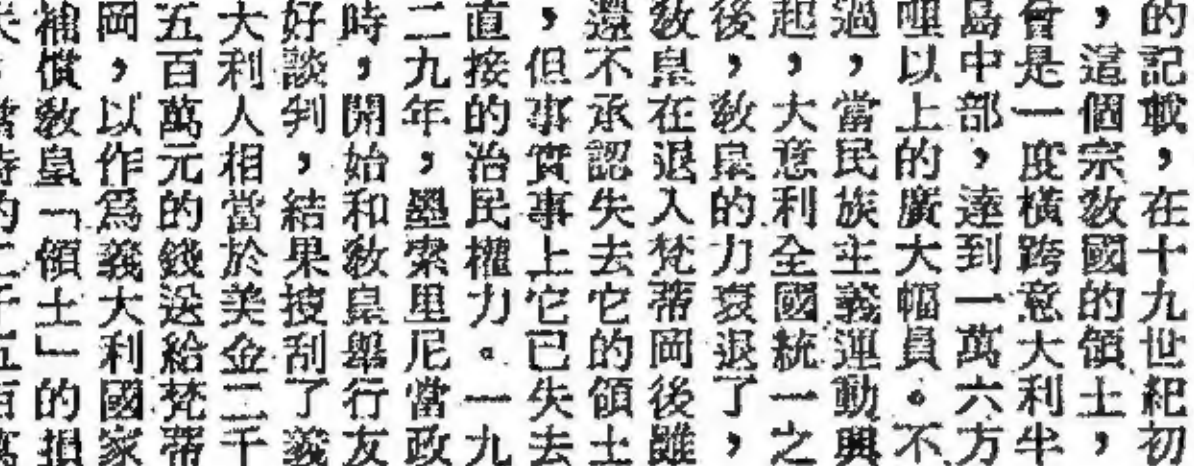 的記載，在十九世紀初
，這個宗教國的領土，
曾是一度橫跨意大利半
島中部，達到一萬六方
哩以上的廣大幅員。不
過，當民族主義運動興
起，大意利全國統一之
後，教皇的力衰退了，
教皇在退入梵蒂岡後雖
還不承認失去它的領土
，但事實事上它已失去
直接的治民權力。一九
二九年，墨索里尼當政
時，開始和教皇舉行友
好談判，結果搜刮了義
大利人相當於美金二千
五百萬元的錢送給梵蒂
岡，以作爲義大利國家
補償教皇「領土」的損